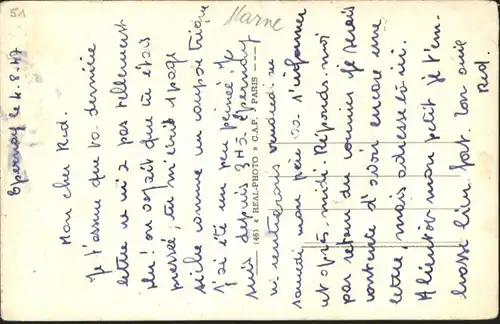 51
Marne
Epernay le 4.8.47
Mon cher Rid.
Je t'assure que ta dernière
lettre ne m'a pas tellement
plu! on voyait que tu étais
pressé, tu m'écrit 1 page
sèche comme un coup de trique
j'ai été un peu peinée. Je
suis depuis à Epernay
ni rentrerais vendredi ou
samedi mon père va s'informer
cet après-midi. Réponds-moi
par retour du courrier je serais
contente d'avoir encore une
lettre, mais adresse-la ici.
A bientôt mon petit je t'em-
brasse bien fort. Ton amie
Rid.
(46) « REAL-PHOTO » C.A.P. PARIS